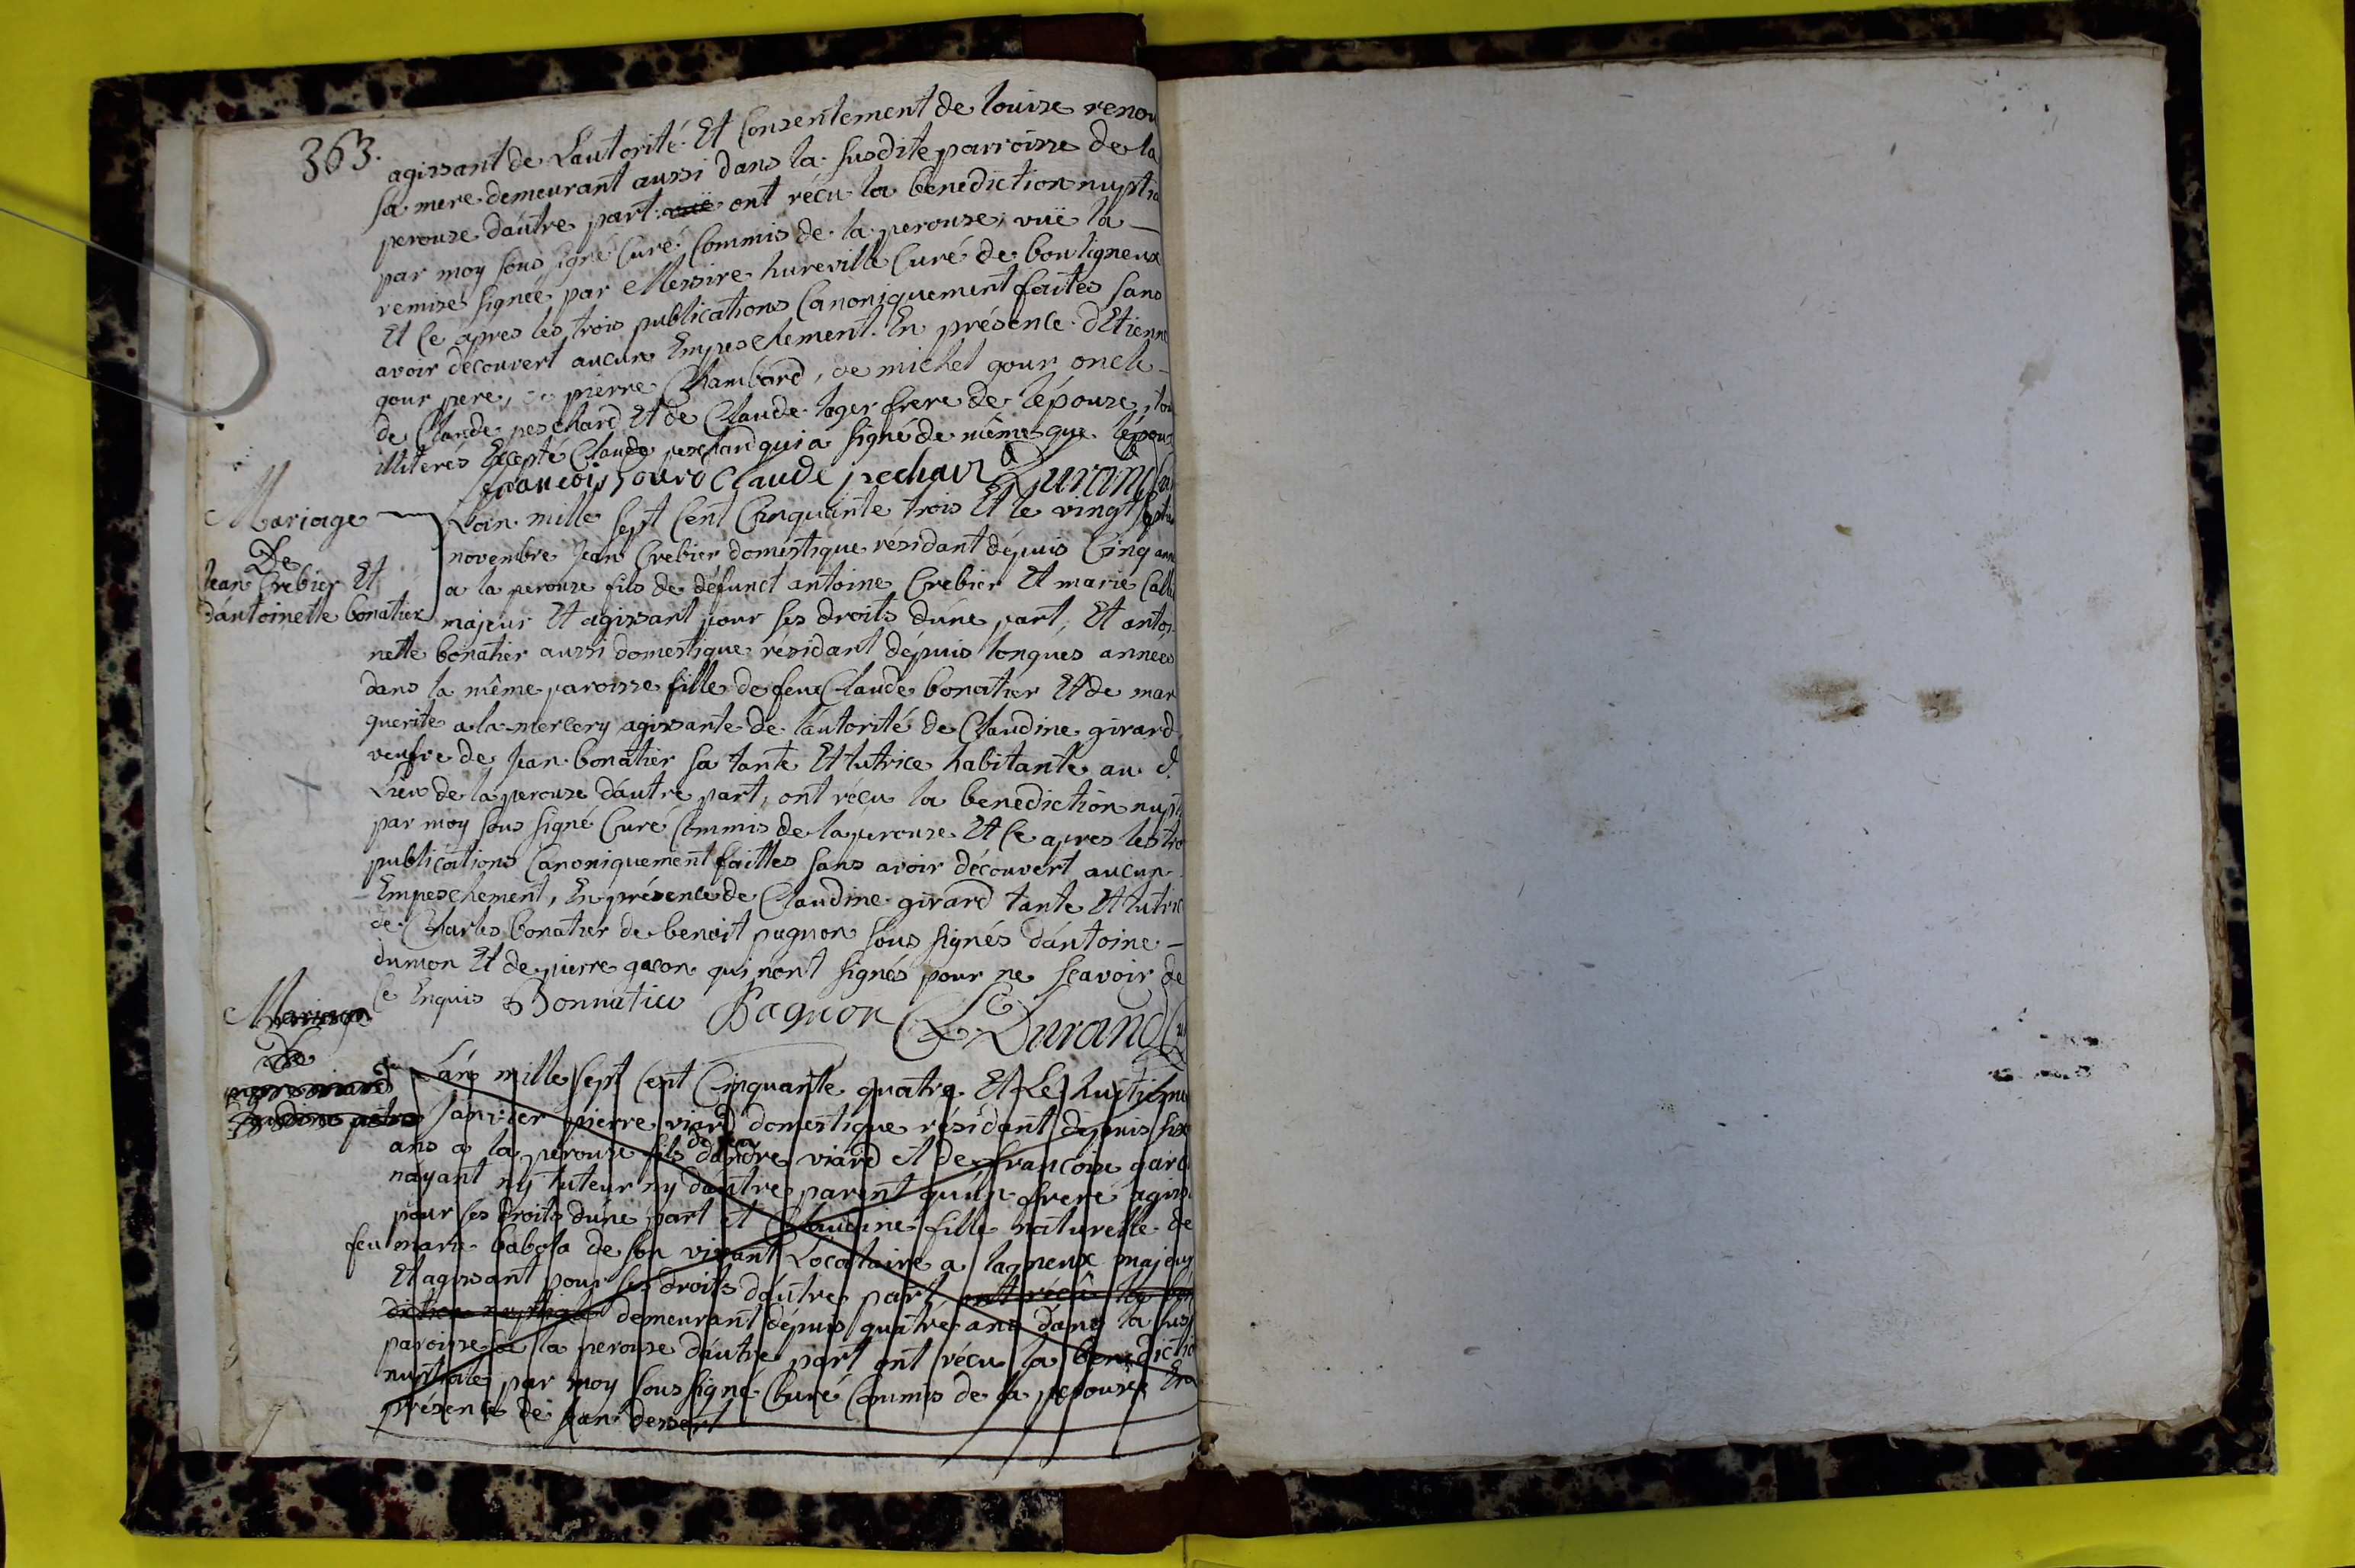 363.
agissant de Lautorité Et Consentement de louise renou
sa mere demeurant aussi dans la susdite parroisse de la
perouse dautre part vuë ont récu la benediction nuptia
par moy sous signé Curé Commis de la perouse, vuë la
remise signée par Messire hureville Curé de bouligneux
Et Ce apres les trois publications Canoniquement faites sans
avoir découvert aucun Empeschement. En présence dEtienne
gour pere, de pierre Chambard, de michel gour oncle
de Claude peschard Et de Claude loger frere de lépouse, tou
illiteres Excepté Claude peschard qui a signé de même que lépoux
françois gourd Claude pechard Durand Cu
Mariage
De
Jean Crebier Et
dantoinette bonatier
Lan mille sept Cent Cinquante trois Et le vingt sept
novembre Jean Crebier domestique résidant dépuis Cinq ann
a la perouse fils de défunct antoine Crebier Et marie
majeur Et agissant pour ses droits dune part, Et antoi
nette bonatier aussi domestique résidant dépuis longues années
dans la même paroisse fille de feu Claude bonatier Et de mar
guerite a la mercery agissante de lautorité de Claudine girard
veufve de Jean bonatier sa tante Et tutrice habitante au d.
Lieu de la perouse dautre part, ont récu la benediction nupt
par moy sous signé Curé Commis de la perouse Et Ce apres les tro
publications Canoniquement faittes sans avoir découvert aucun
Empeschement, En présence de Claudine girard tante Et tutric
de Charles bonatier de benoit pagnon sous signés dantoine
dumon Et de pierre gacon qui nont signés pour ne scavoir de
Ce Enquis Bonnatier Pagnon Durand Cu
Mariage
De
Lan mille sept Cent Cinquante quatre Et Le huitieme
Janvier pierre viard domestique résidant dépuis six
ans a la perouse fils de feu dandre viard et de françoise gard
nayant ny tuteur ny dautre parent quun frere agiss
pour ses droits dune part et Claudine fille naturelle de
feu marie babola de son vivant Locataire a lagneux majeur
Et agissant pour ses droits dautre part ont récu la bén
diction nuptiale demeurant dépuis quatre ans dans la susd
paroisse de la perouse dautre part ont récu la benedictio
nuptiale par moy sous signé Curé Commis de la perouse En
présence de Jean dessert